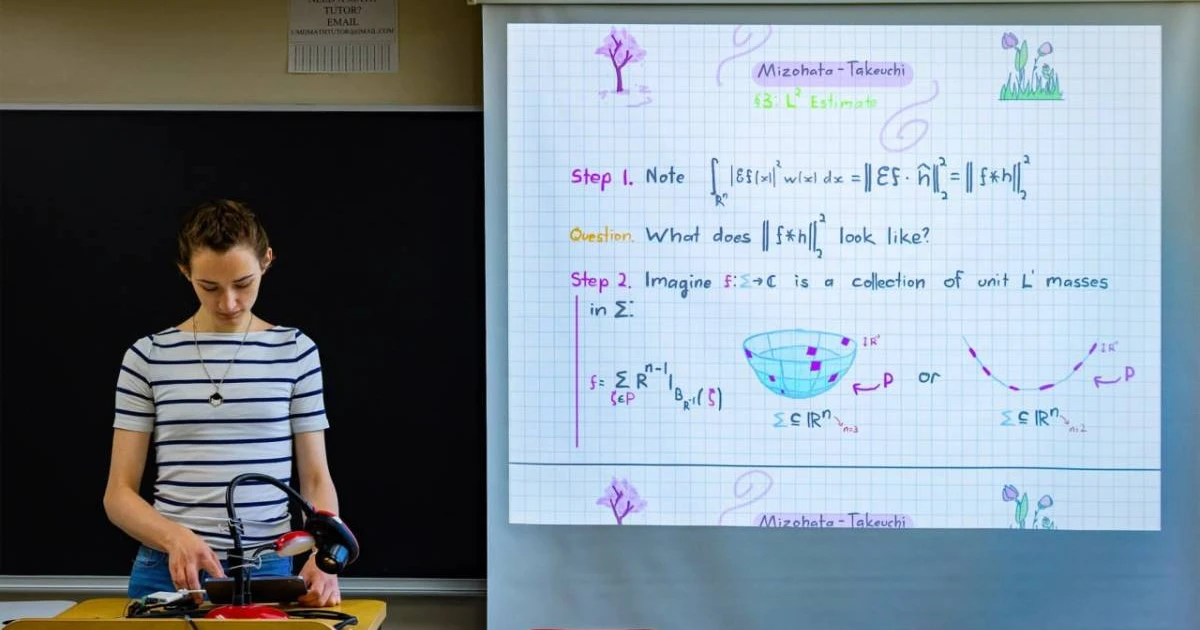 NEED A MATH
TUTOR?
EMAIL
UMDMATHTUTOR@GMAIL.COM
Mizohata - Takeuchi
§3: L² Estimate
Step 1. Note ∫_ℝⁿ |Ef(x)|² w(x) dx = ‖Ef · ĥ‖₂² = ‖f*h‖₂²
Question. What does ‖f*h‖₂² look like?
Step 2. Imagine f: Σ→ℂ is a collection of unit L¹ masses
in Σ:
f = Σ_{ζ∈P} R^{n-1} 1_{B_{R⁻¹}(ζ)}
IR⁻¹ P or IR⁻¹ P
Σ ⊆ ℝⁿ n=3 Σ ⊆ ℝⁿ n=2
Mizohata - Takeuchi